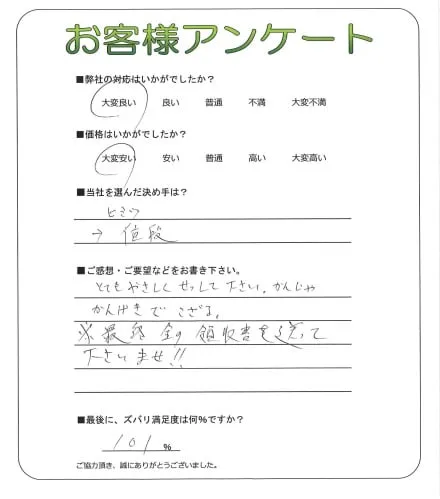 お客様アンケート
■弊社の対応はいかがでしたか？
大変良い 良い 普通 不満 大変不満
■価格はいかがでしたか？
大変安い 安い 普通 高い 大変高い
■当社を選んだ決め手は？
ヒミツ
→ 値段
■ご感想・ご要望などをお書き下さい。
とてもやさしくせっして下さい、かんじゃ
かんげきでござる。
※最終金の領収書を送って
下さいませ!!
■最後に、ズバリ満足度は何%ですか？
101 %
ご協力頂き、誠にありがとうございました。